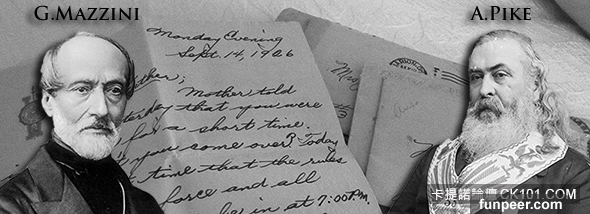 G.MAZZINI
A.PIKE
Monday Evening
Sept. 14, 1926
ther;
Mother told
terday that you were
for a short time.
you come over? Today
t time that the rules
force and all
be in at 7:00 P.M.
卡提諾論壇 CK101.COM
funpeer.com